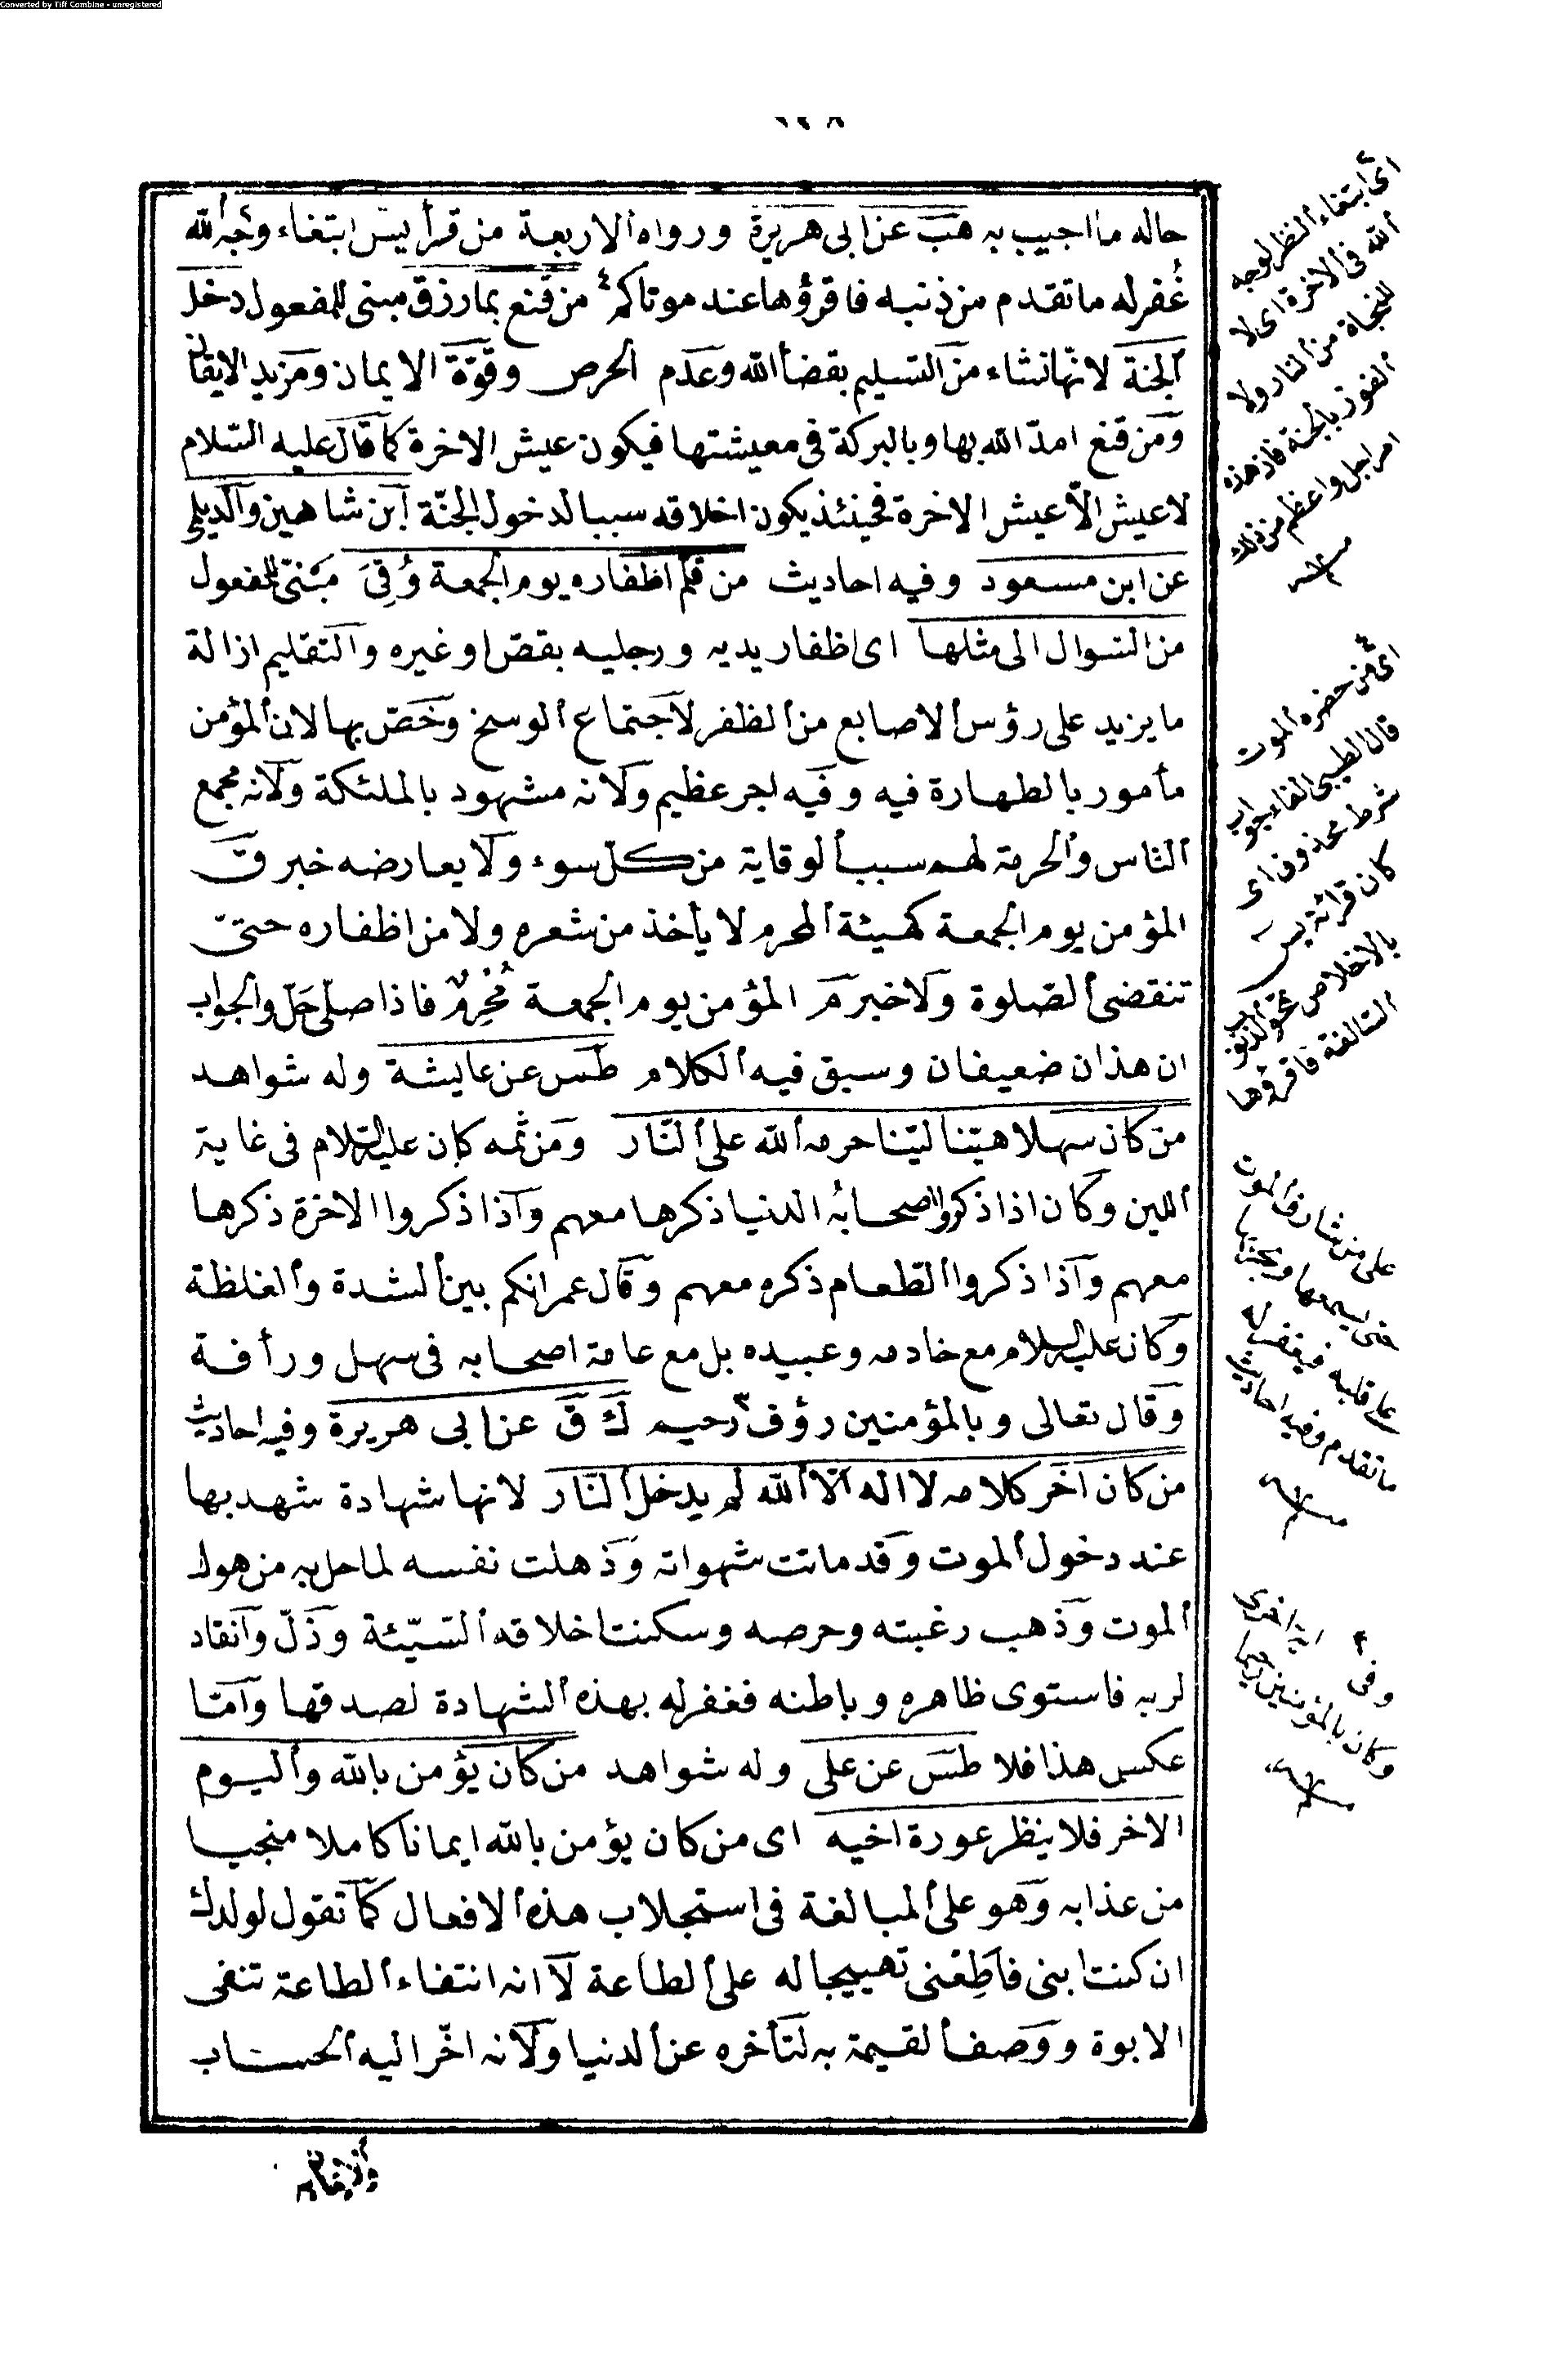 Converted by Tiff Combine - unregistered
١٢٨
حاله ما اجيب به هب عن ابى هريرة ورواه الاربعة من قرأ يس ابتغاء وجه الله
غُفر له ما تقدم من ذنبه فاقرؤها عند موتاكم من قنع بما رزق مبنى للمفعول دخل
الجنة لانها تنشاء من التسليم بقضأ الله وعدم الحرص وقوّة الايمان ومزيد الايقان
ومن قنع امدّ الله بها وبالبركة فى معيشتها فيكون عيش الاخرة كما قال عليه السلام
لا عيش الاّ عيش الاخرة فحينئذ يكون اخلاقه سببا لدخول الجنّة ابن شاهين والديلمى
عن ابن مسعود وفيه احاديث من قلم اظفاره يوم الجمعة وُقِىَ مبنىّ للمفعول
من السوال الى مثلها اى اظفار يديه ورجليه بقصّ او غيره والتقليم ازالة
ما يزيد على رؤس الاصابع من الظفر لاجتماع الوسخ وخصّ بها لان المؤمن
مأمور بالطهارة فيه وفيه اجر عظيم ولانه مشهود بالملئكة ولانه مجمع
الناس والحرمة لهم سبب الوقاية من كلّ سوء ولا يعارضه خبر ق
المؤمن يوم الجمعة كهيئة المحرم لا يأخذ من شعره ولا من اظفاره حتى
تنقضى الصلوة ولا خبرم المؤمن يوم الجمعة مُحْرِمٌ فاذا صلّى حَلّ والجواب
ان هذان ضعيفان وسبق فيه الكلام طس عن عايشة وله شواهد
من كان سهلا هيّنا ليّنا حرمه الله على النّار ومن ثمه كان عليه السّلام فى غاية
اللين وكان اذا ذكروا اصحابهُ الدنيا ذكرها معهم واذا ذكروا الاخرة ذكرها
معهم واذا ذكروا الطعام ذكره معهم وقال عمر انكم بين الشدة والغلظة
وكان عليه السلام مع خادمه وعبيده بل مع عامة اصحابه فى سهل ورأفة
وقال تعالى وبالمؤمنين رؤف رحيم ك ق عن ابى هريرة وفيه احاديث
من كان اخر كلامه لا اله الاّ الله لم يدخل النّار لانها شهادة شهد بها
عند دخول الموت وقد ماتت شهواته وذهلت نفسه لما حل به من هول
الموت وذهب رغبته وحرصه وسكنت اخلاقه السيّئة وذلّ وانقاد
لربه فاستوى ظاهره وباطنه فغفر له بهذه الشهادة لصدقها وامّا
عكس هذا فلا طس عن على وله شواهد من كان يؤمن بالله واليوم
الاخر فلا ينظر عورة اخيه اى من كان يؤمن بالله ايمانا كاملا منجيا
من عذابه وهو على المبالغة فى استجلاب هذه الافعال كما تقول لولدك
ان كنت ابنى فأطِعْنى تهييجا له على الطاعة لا انه انتفاء الطاعة تنفى
الابوة ووصف القيمة به لتأخره عن الدنيا ولانه اخّر اليه الحساب
اى ابتغاء النظر لوجه
الله فى الاخرة اى لا
للنجاة من النار ولا
الفوز بالجنة فان هذه
امر اجل واعظم من ذلك
اى من حضره الموت
قال الطيبى الفاء جواب
شرط محذوف اى
كان قرائة يس
بالاخلاص تمحو الذنوب
السالفة فاقرؤها
على من شارف الموت
حتى يسمعها ويجريها
على قلبه فيغفر له
ما تقدم وفيه احاديث
وفى اية اخرى
وكان بالمؤمنين رحيما